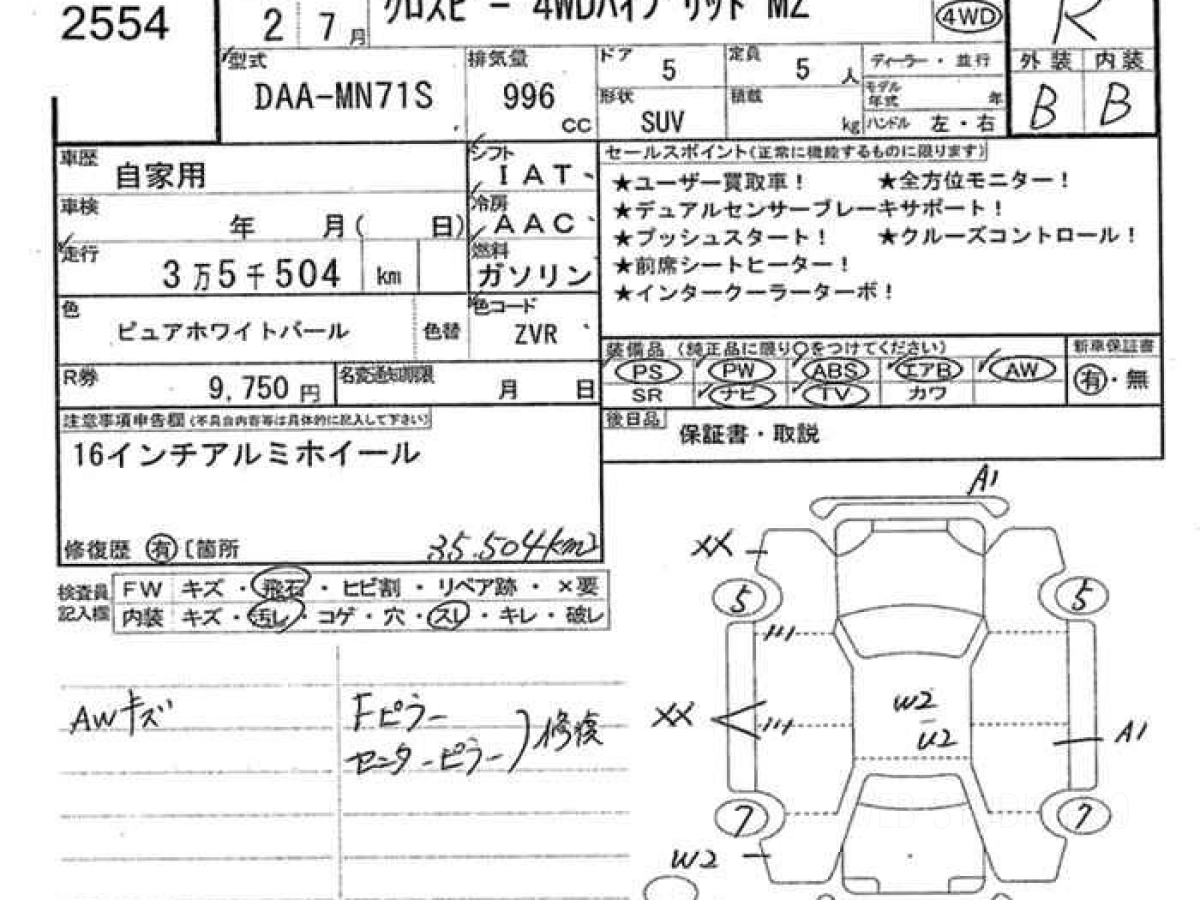 2554
2 7月
クロスビー 4WDハイブリッド MZ
4WD
R
型式
DAA-MN71S
排気量
996
CC
ドア
5
定員
5 人
形状
SUV
積載
kg
ディーラー・並行
モデル年式 年
ハンドル 左・右
外装 内装
B B
車歴
自家用
車検
年 月( 日)
走行
3万5千504 km
シフト
IAT
冷房
AAC
燃料
ガソリン
色
ピュアホワイトパール
色替
色コード
ZVR
R券
9,750 円
名変通知期限
月 日
セールスポイント(正常に機能するものに限ります)
★ユーザー買取車! ★全方位モニター!
★デュアルセンサーブレーキサポート!
★プッシュスタート! ★クルーズコントロール!
★前席シートヒーター!
★インタークーラーターボ!
装備品 (純正品に限り〇をつけてください)
PS PW ABS エアB AW
SR ナビ TV カワ
新車保証書
有・無
後日品
保証書・取説
注意事項申告欄(不具合内容等は具体的に記入して下さい)
16インチアルミホイール
修復歴 有 [箇所
35.504km
検査員記入欄
FW キズ・飛石・ヒビ割・リペア跡・×要
内装 キズ・汚レ・コゲ・穴・スレ・キレ・破レ
AWキズ
Fピラー
センターピラー)修復
A1
XX
5 5
XX
W2
U2
A1
7 7
W2